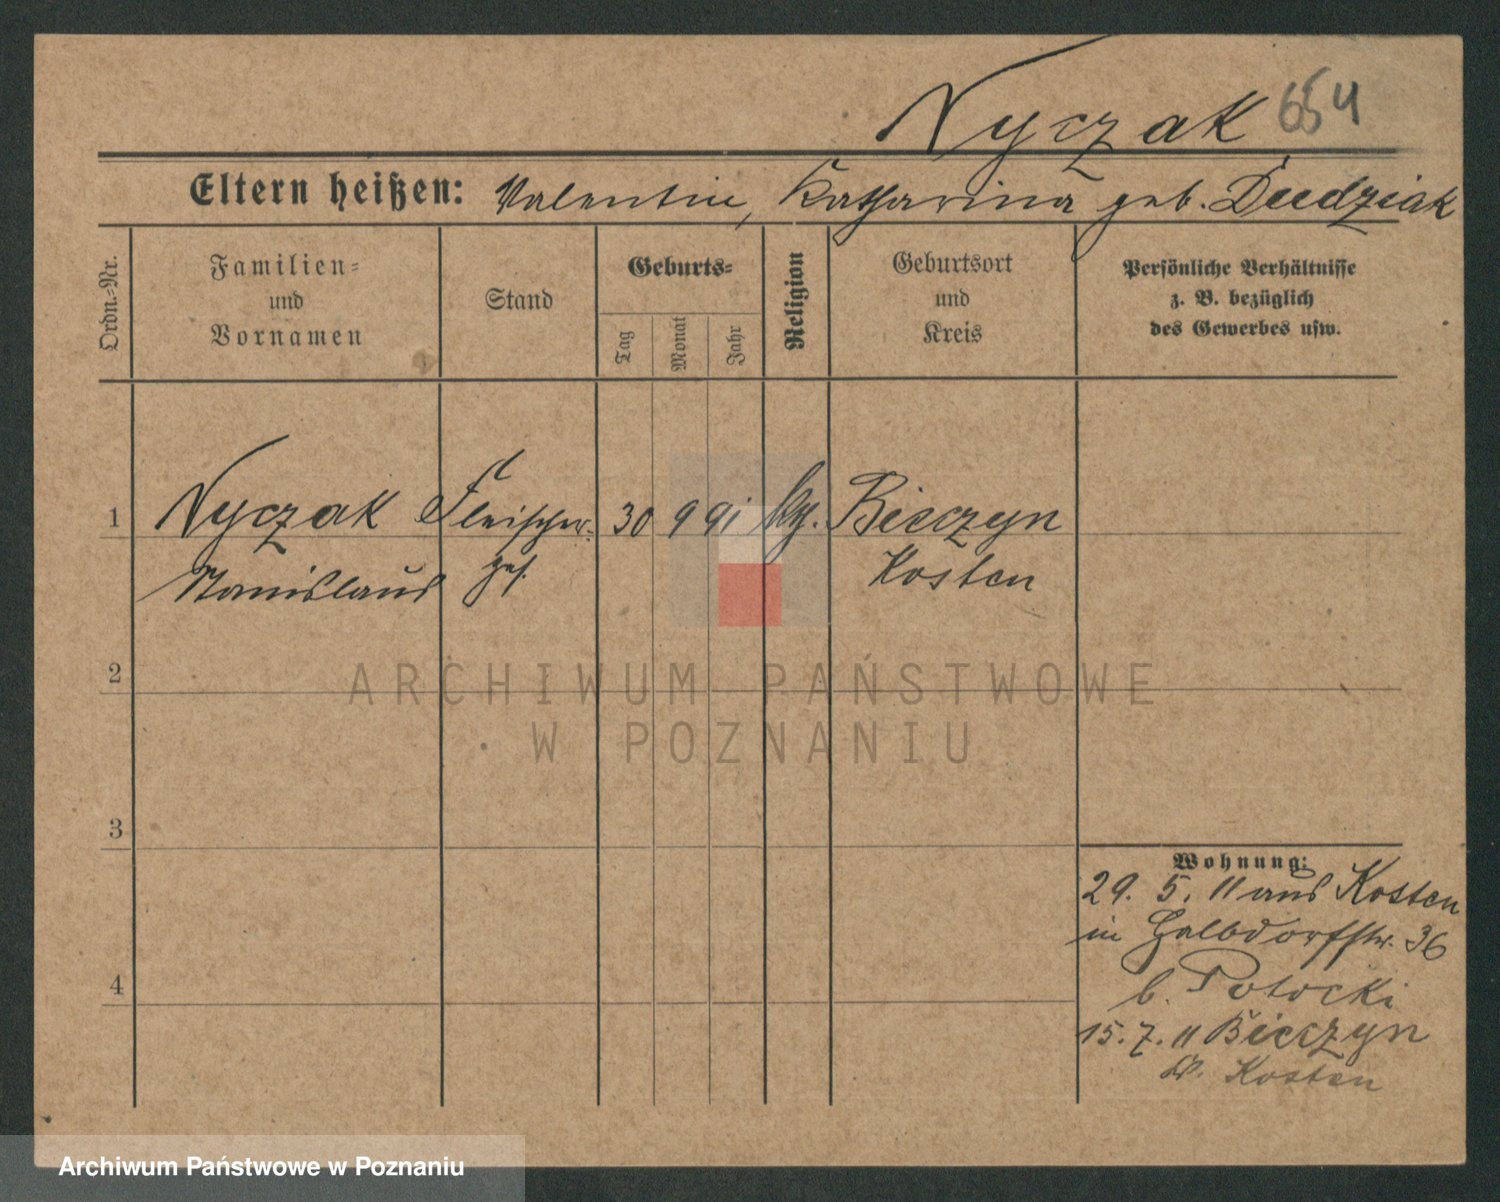 Nyczak 654
Eltern heißen: Valentin, Katharina geb. Dudziak
Ordn.-Nr.
Familien-
und
Vornamen
Stand
Geburts-
Tag
Monat
Jahr
Religion
Geburtsort
und
Kreis
Persönliche Verhältnisse
z. B. bezüglich
des Gewerbes usw.
1 Nyczak Fleischer- 30 9 91 Bieczyn
Stanislaus ges. Kosten
2
3
4
Wohnung:
29. 5. 11 aus Kosten
in Halbdorfstr. 36
b. Potocki
15. 7. 11 Bieczyn
Kosten
ARCHIWUM PAŃSTWOWE
W POZNANIU
Archiwum Państwowe w Poznaniu